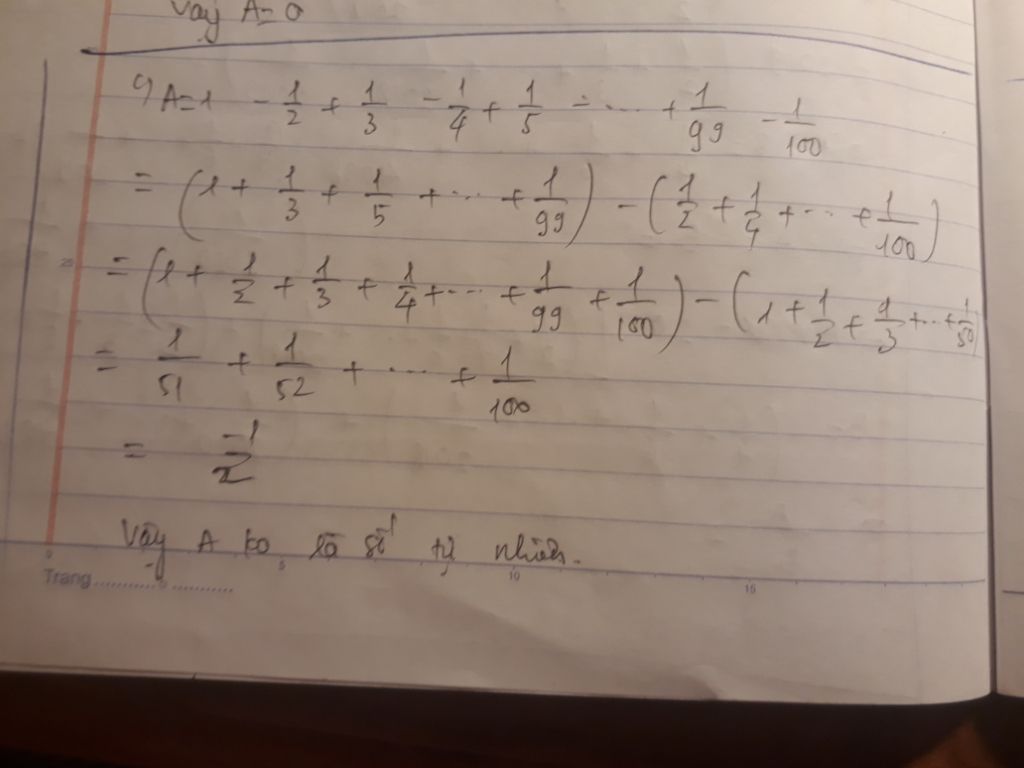 Vậy A = 0
c) A = 1 - 1/2 + 1/3 - 1/4 + 1/5 - ... + 1/99 - 1/100
= (1 + 1/3 + 1/5 + ... + 1/99) - (1/2 + 1/4 + ... + 1/100)
= (1 + 1/2 + 1/3 + 1/4 + ... + 1/99 + 1/100) - (1 + 1/2 + 1/3 + ... + 1/50)
= 1/51 + 1/52 + ... + 1/100
= -1/2
Vậy A ko là số tự nhiên.
Trang
20
0 5 10 15